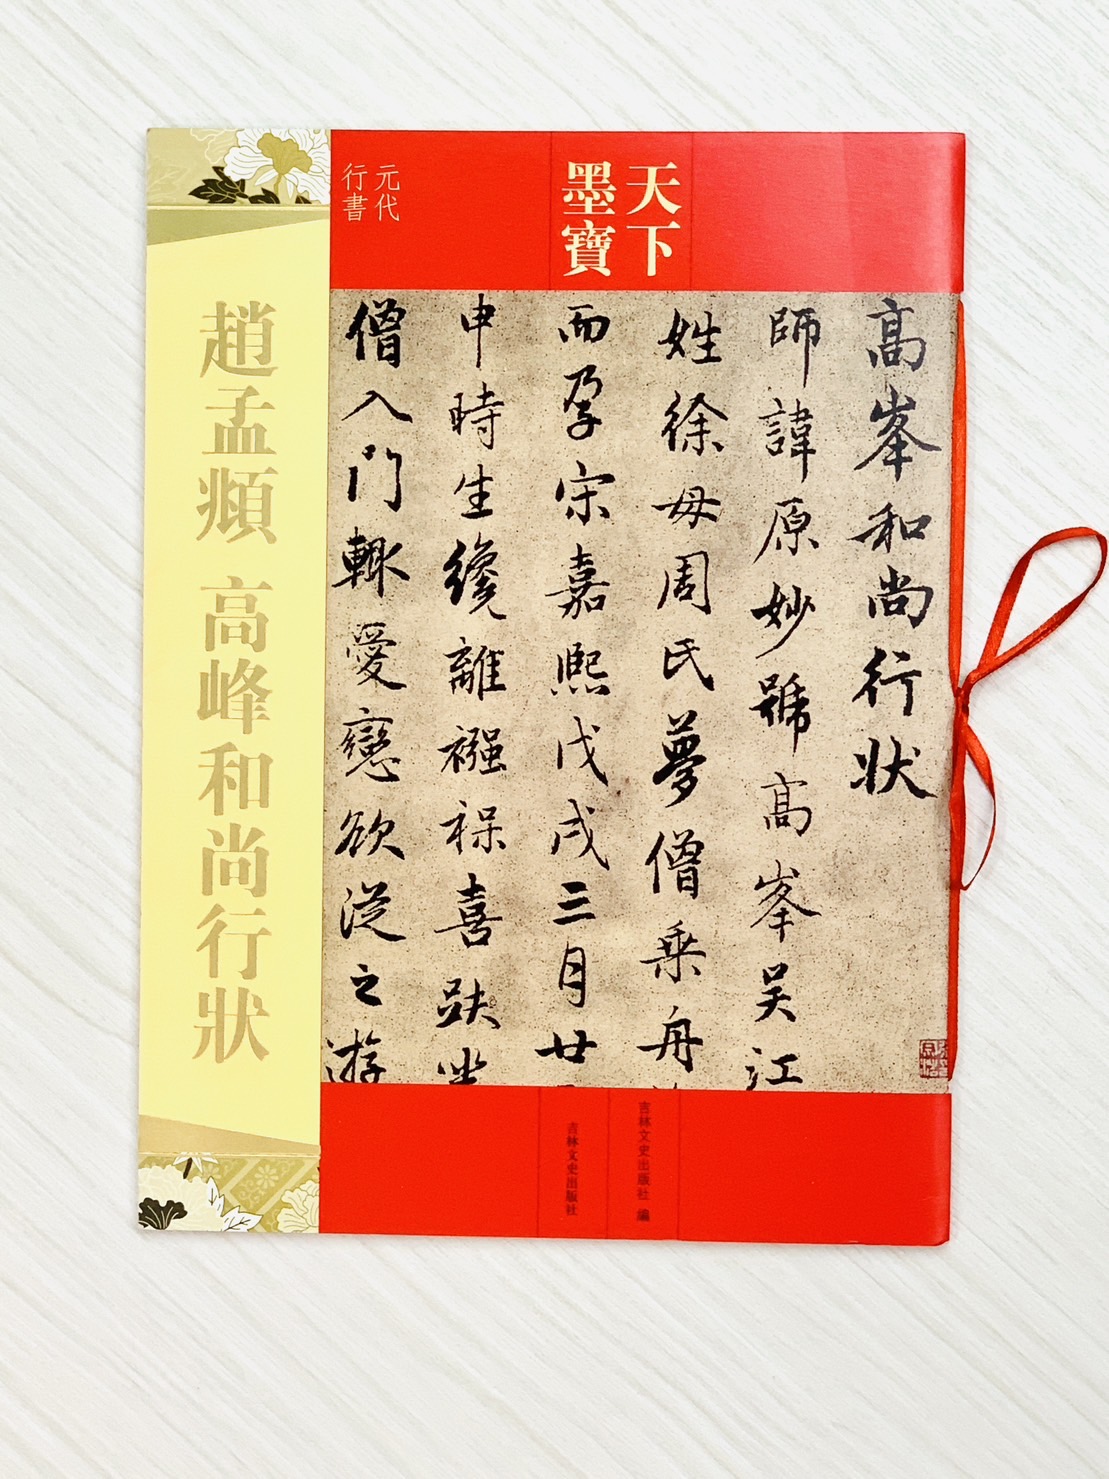 天下
墨寶
元代
行書
高峯和尚行狀
師諱原妙號高峯吴江
姓徐母周氏夢僧乗舟
而孕宋嘉熙戊戌三月廿
申時生纔離襁褓喜趺坐
僧入門輙愛戀欲從之游
趙孟頫 高峰和尚行狀
吉林文史出版社 編
吉林文史出版社